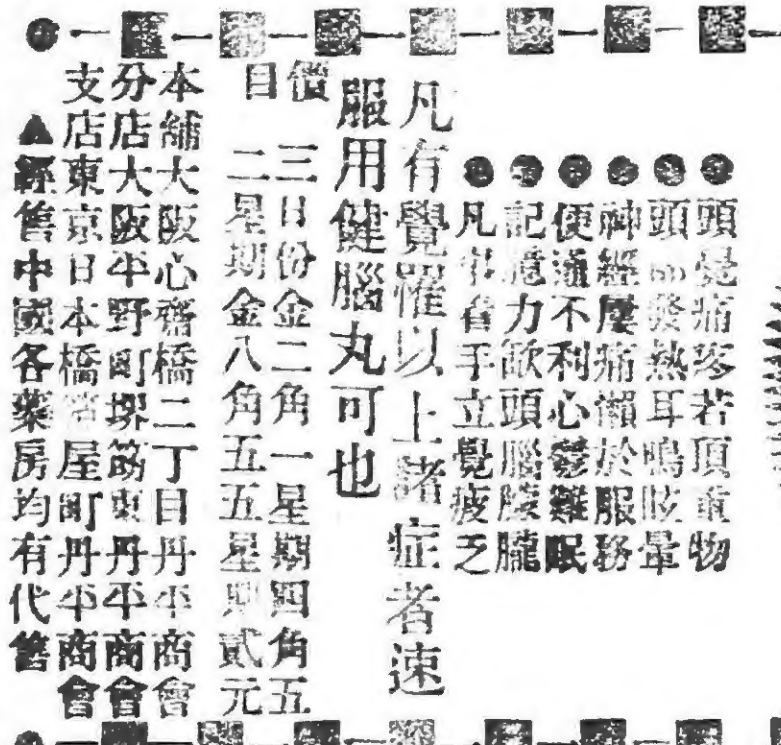 ●頭覺痛疼若頂重物
●頭面發熱耳鳴眩暈
●神經屢痛懶於服務
●便通不利心鬱難眠
●記憶力歇頭腦朦朧
●凡事着手立覺疲乏
凡有覺罹以上諸症者速
服用健腦丸可也
價目
三日份金二角一星期四角五
二星期金八角五五星期貳元
本舖大阪心齋橋二丁目丹平商會
分店大阪平野町堺筋東丹平商會
支店東京日本橋 屋町丹平商會
▲經售中國各藥房均有代售